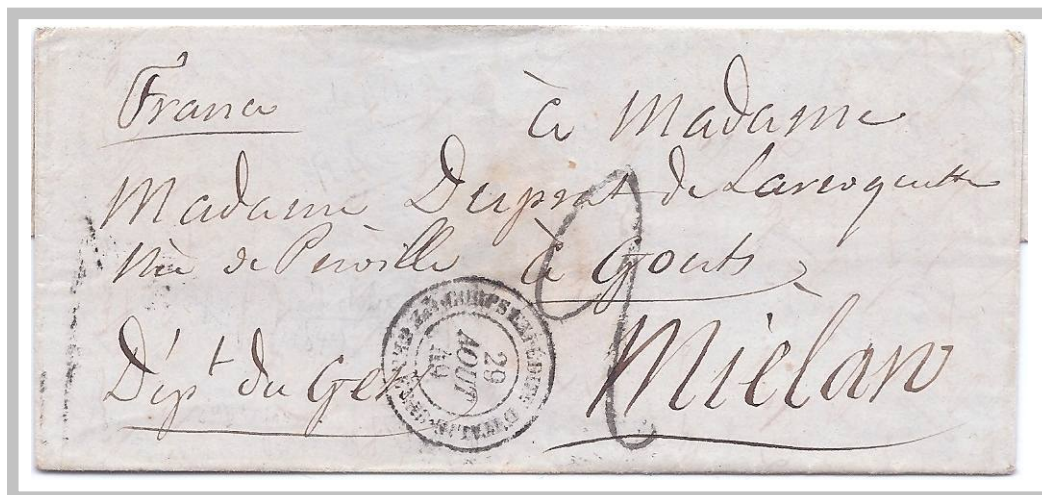 France
à Madame
Madame Duprat de Larroquette
née de Périville à Gouts
Dépt du Gers Miélan
2
CORPS EXPED.RE D'ITALIE
29
AOUT
49